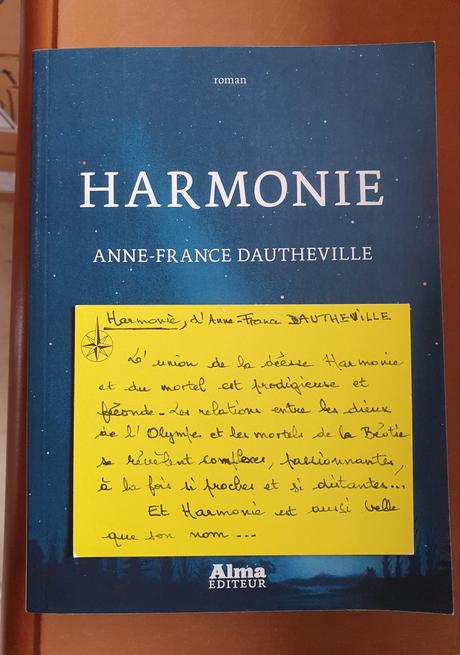 roman
HARMONIE
ANNE-FRANCE DAUTHEVILLE
Harmonie, d'Anne-France DAUTHEVILLE
L'union de la déesse Harmonie
et du mortel est prodigieuse et
féconde. Les relations entre les dieux
de l'Olympe et les mortels de la Béotie
se révèlent complexes, passionnantes,
à la fois si proches et si distantes...
Et Harmonie est aussi belle
que son nom ...
Alma
ÉDITEUR